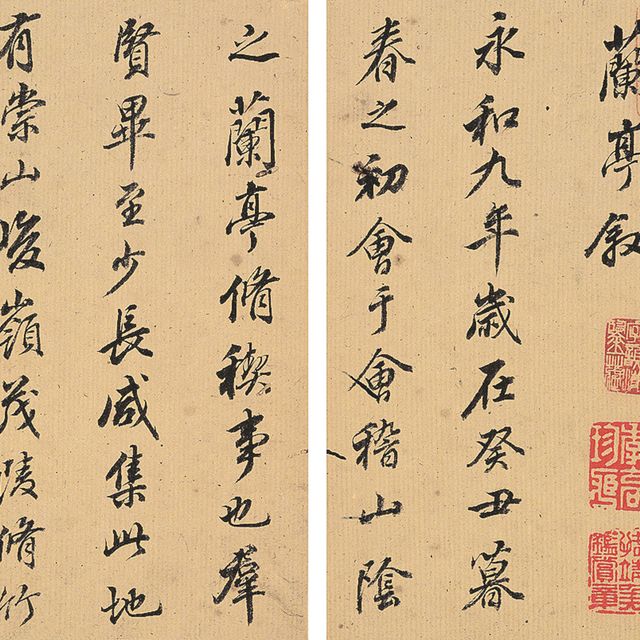 蘭亭叙
永和九年歲在癸丑暮
春之初會于會稽山陰
之蘭亭脩稧事也羣
賢畢至少長咸集此地
有崇山峻嶺茂陵脩竹